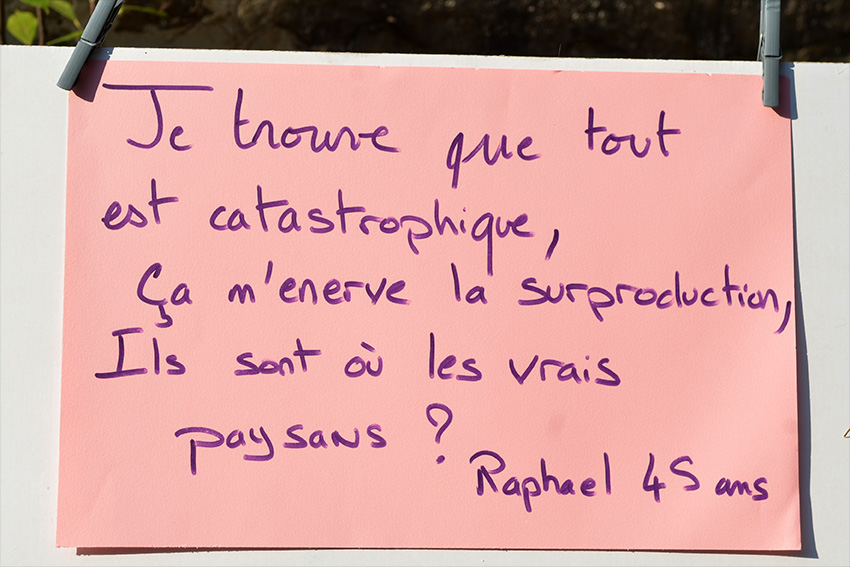 Je trouve que tout
est catastrophique,
Ça m'enerve la surproduction,
Ils sont où les vrais
paysans ?
Raphael 45 ans